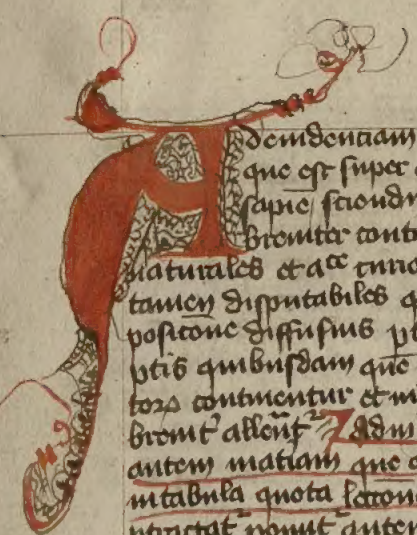 Adeuidenciam
que est super
sapie sciendu
breuiter conti
naturales et
tamen disputabiles q
positione diffusius pt
ptis quibusdam que
continentur et in
breuit allent Zadin
autem matiam que e
in tabula quota lectone
ponit autem